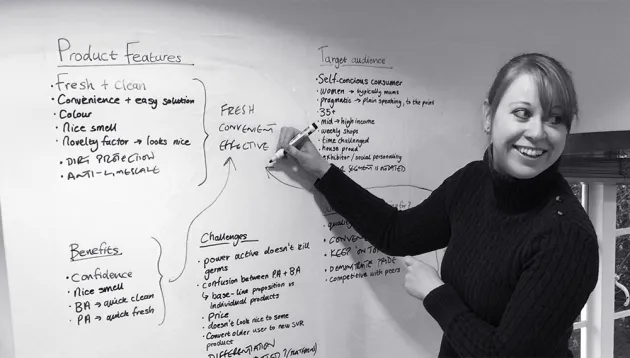 Product Features
· Fresh + Clean
· Convenience + easy solution
· Colour
· Nice smell
· Novelty factor → looks nice
· DIRT PROTECTION
· ANTI-LIMESCALE
FRESH
CONVENIENT
EFFECTIVE
Target audience
· Self-concious consumer
· women → typically mums
· pragmatic → plain speaking, to the point
· 35+
· mid → high income
· weekly shops
· time challenged
· house proud
· exhibitor / social personality
SEGMENT
Benefits
· Confidence
· Nice smell
· BA → quick clean
· PA → quick fresh
Challenges
· power active doesn't kill
germs
· confusion between PA + BA
↳ base-line proposition vs
individual products
· Price
· doesn't look nice to some
· Convert older user to new SVR
product
DIFFERENTIATION
for?
quality
· KEEP ON TOP
· DEMONSTRATE
· competitive with peers